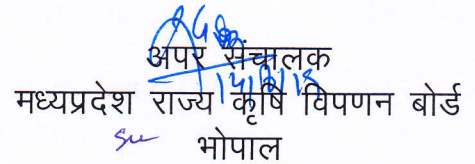 अपर संचालक
मध्यप्रदेश राज्य कृषि विपणन बोर्ड
भोपाल